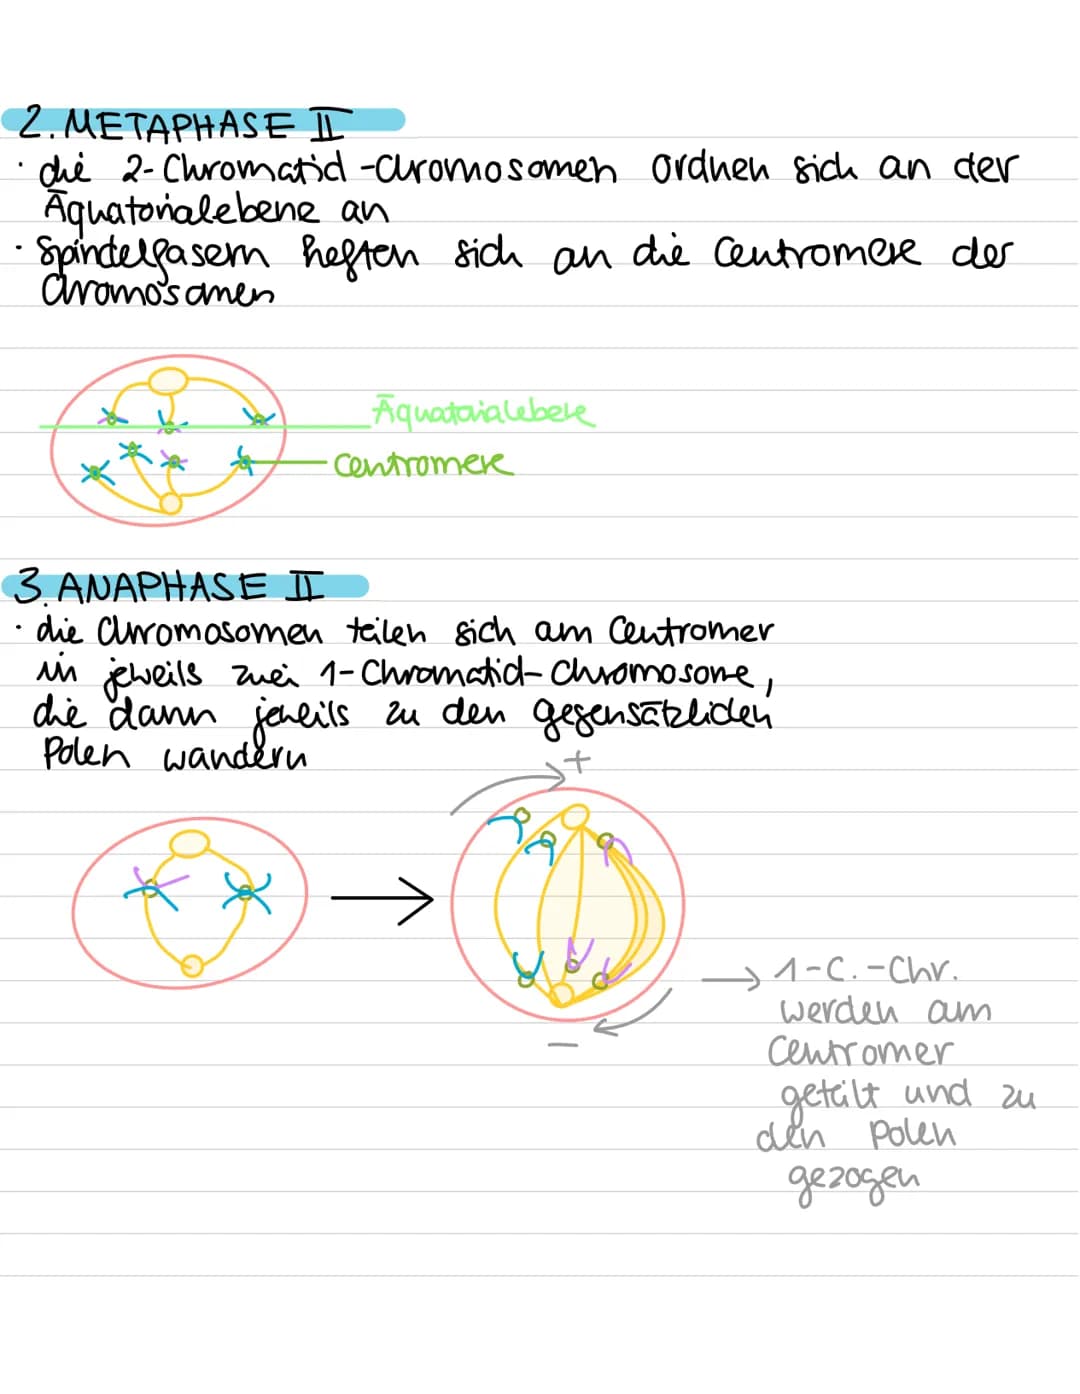 2. METAPHASE II
· die 2-Chromatid-Chromosomen ordnen sich an der
Äquatorialebene an
· Spindelfasern heften sich an die Centromere der
Chromosomen
Äquatorialebene
Centromere
3. ANAPHASE II
· die Chromosomen teilen sich am Centromer
in jeweils zwei 1-Chromatid-Chromosome,
die dann jeweils zu den gegensätzlichen
Polen wandern
+
→ 1-C.-Chr.
werden am
Centromer
geteilt und zu
den Polen
gezogen
–